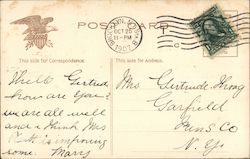 POST CARD
BROOKLYN, N.Y.
OCT 25
11-PM
1907
This side for Correspondence.
This side for Address.
Well Gertrude
how are you?
we are all well
and I think Mrs
is improving
some. Mary
Mrs. Gertrude
Garfield
Rens Co
N. Y.